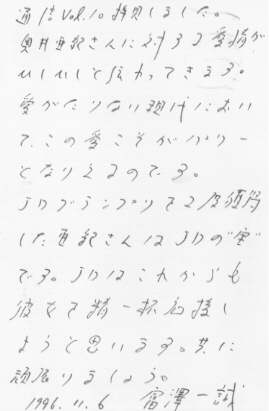 通信Vol.10拝見しました。
奥井亜紀さんに対する愛情が
ひしひしと伝わってきます。
愛がたりない現代において
、この愛こそがパワー
となりえるのです。
JDグランプリを2度獲得
した亜紀さんはJDの"宝"
です。JDはこれからも
彼女を精一杯応援し
ようと思います。共に
頑張りましょう。
1996.11.6 富澤一誠